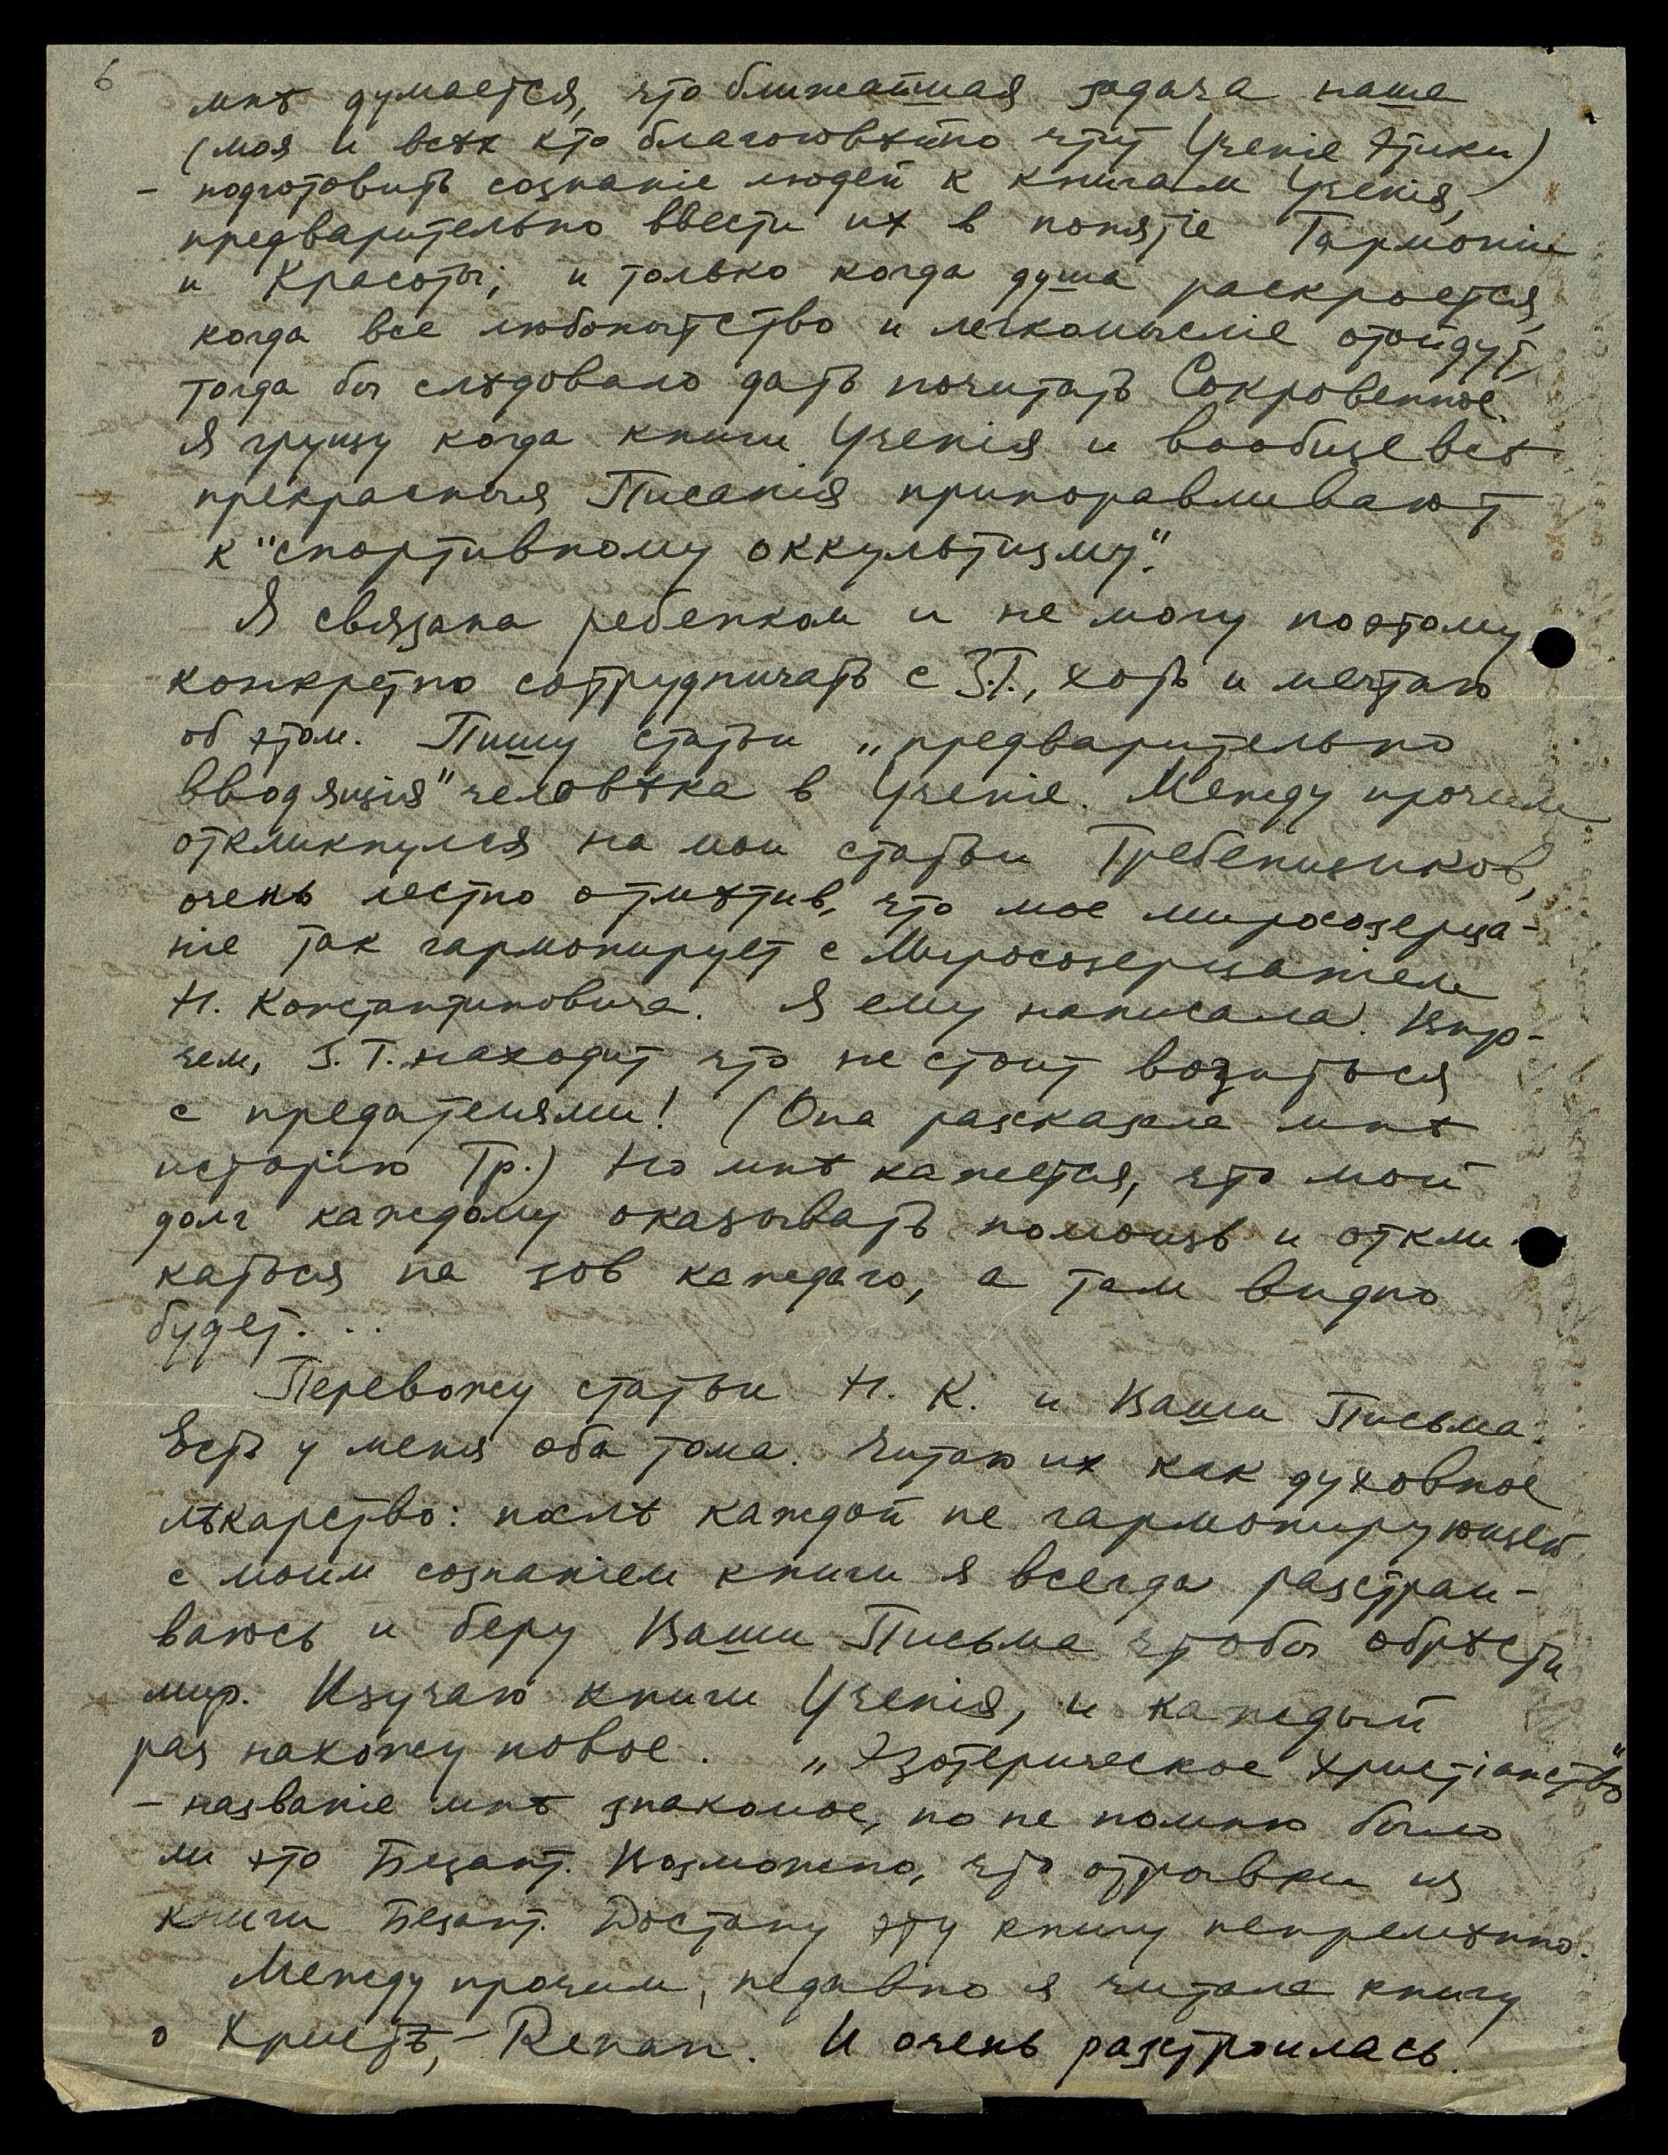 6
мнѣ думается, что ближайшая задача наша
(моя и всѣх кто благоговѣйно чтит Ученіе Этики)
– подготовить сознаніе людей к книгам Ученія,
предварительно ввести их в понятіе Гармоніи
и Красоты; и только когда душа раскроется,
когда все любопытство и легкомысліе отойдут,
тогда бы слѣдовало дать почитать Сокровенное.
Я грущу когда книги Ученія и вообще всѣ
прекрасныя Писанія приноравливают
к "спортивному оккультизму".
Я связана ребенком и не могу поэтому
конкретно сотрудничать с З.Г., хоть и мечтаю
об этом. Пишу статьи „предварительно
вводящія" человѣка в Ученіе. Между прочим
откликнулся на мои статьи Гребенщиков,
очень лестно отмѣтив, что мое миросозерца-
ніе так гармонирует с Миросозерцаніем
Н. Константиновича. Я ему написала. Впро-
чем, З.Г. находит что не стоит возиться
с предателями! (Она разсказала мнѣ
исторію Гр.) Но мнѣ кажется, что мой
долг каждому оказывать помощь и откли-
каться на зов каждаго, а там видно
будет...
Перевожу статьи Н. К. и Ваши Письма.
Есть у меня оба тома. Читаю их как духовное
лѣкарство: послѣ каждой не гармонирующей
с моим сознаніем книги я всегда разстраи-
ваюсь и беру Ваши Письма чтобы обрѣсти
мир. Изучаю книги Ученія, и каждый
раз нахожу новое. „Эзотерическое Христіанство"
– названіе мнѣ знакомое, но не помню было
ли это Безант. Возможно, что отрывки из
книги Безант. Достану эту книгу непремѣнно.
Между прочим, недавно я читала книгу
о Христѣ, – Renan. И очень разстроилась.